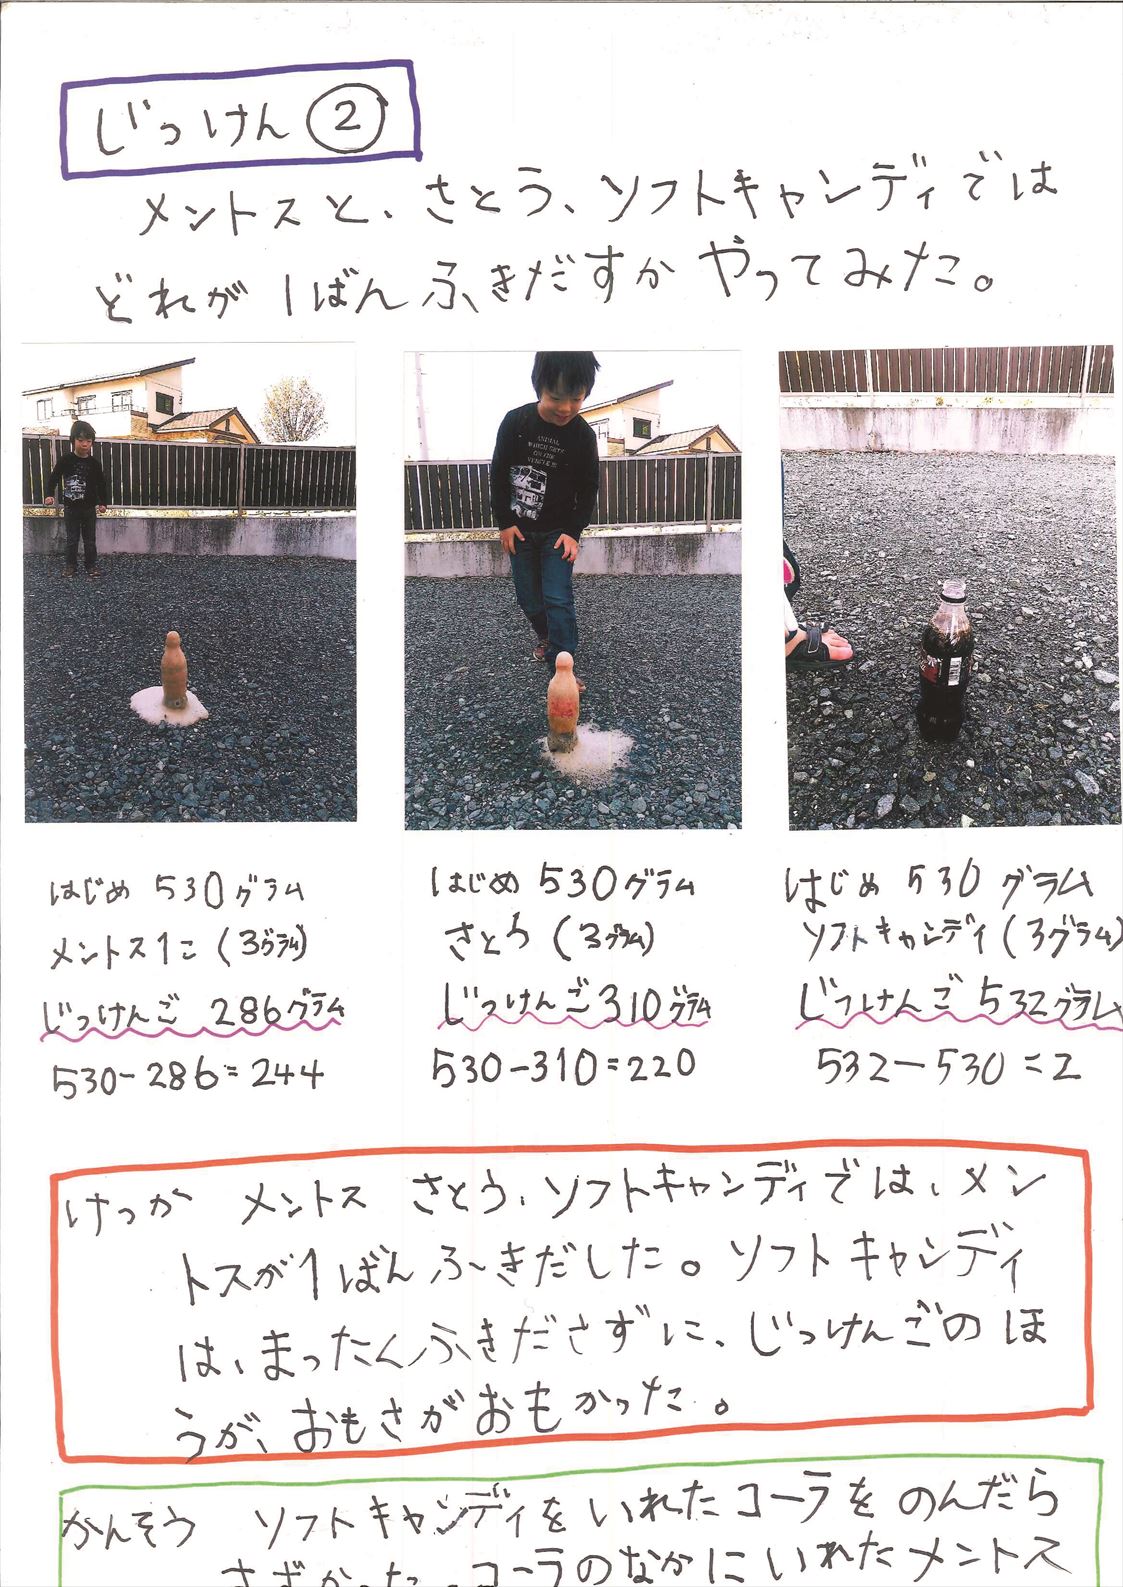 じっけん②
メントスと、さとう、ソフトキャンディでは
どれが1ばんふきだすかやってみた。
はじめ 530グラム
メントス1こ(3グラム)
じっけんご 286グラム
530-286=244
はじめ 530グラム
さとう(3グラム)
じっけんご310グラム
530-310=220
はじめ 530グラム
ソフトキャンディ(3グラム)
じっけんご 532グラム
532-530=2
けっか メントス さとう、ソフトキャンディでは、メン
トスが1ばんふきだした。ソフトキャンディ
は、まったくふきださずに、じっけんごのほ
うが、おもさがおもかった。
かんそう ソフトキャンディをいれたコーラをのんだら
コーラのなかにいれたメントス